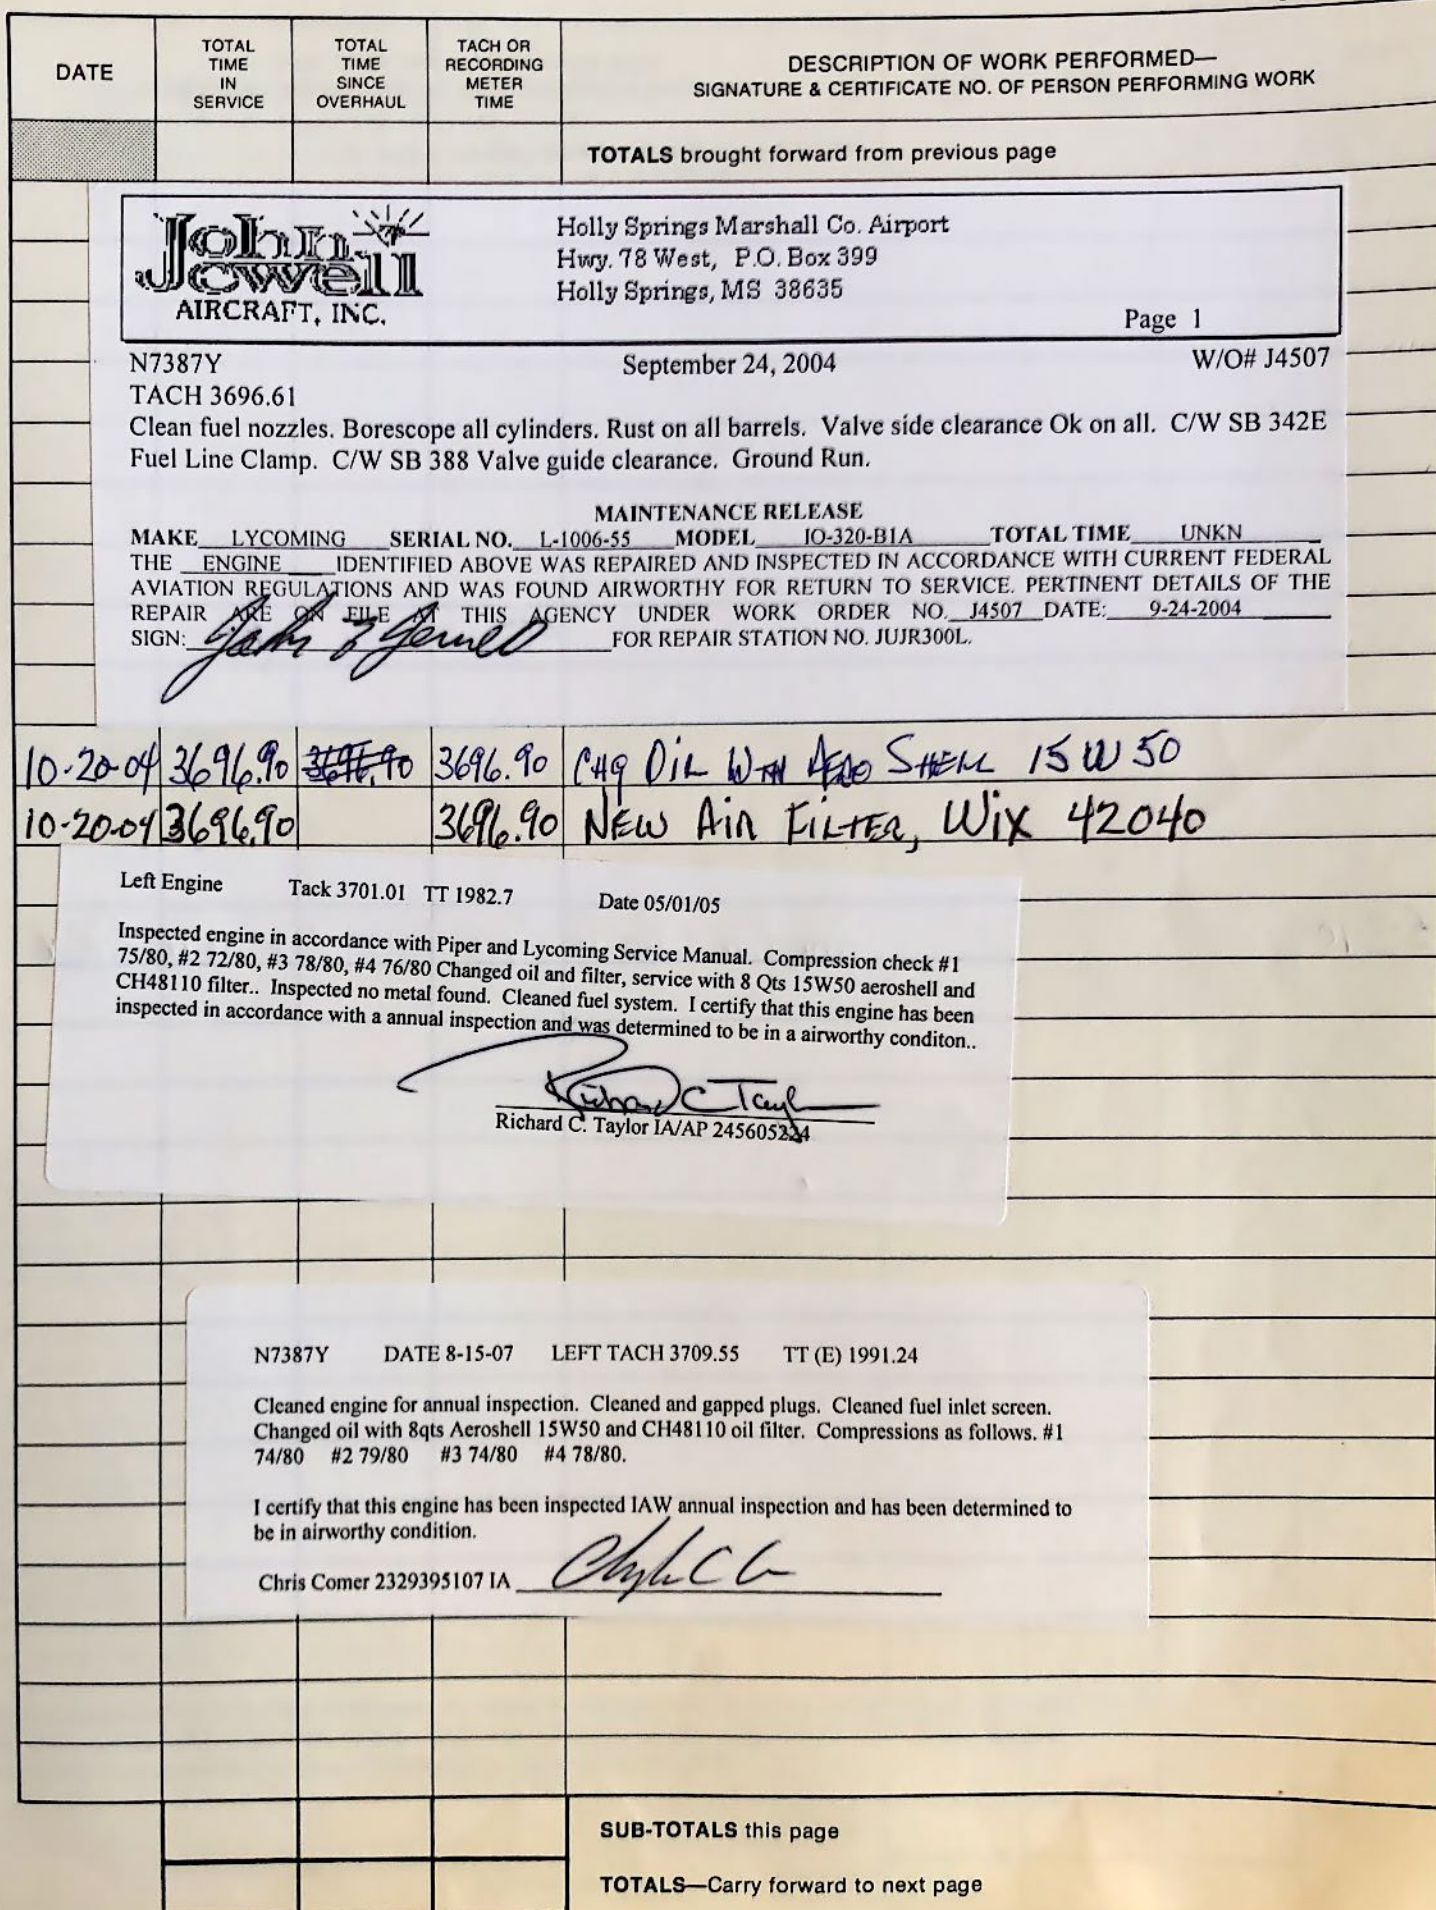 DATE
TOTAL TIME IN SERVICE
TOTAL TIME SINCE OVERHAUL
TACH OR RECORDING METER TIME
DESCRIPTION OF WORK PERFORMED—
SIGNATURE & CERTIFICATE NO. OF PERSON PERFORMING WORK
TOTALS brought forward from previous page
John Jowell
AIRCRAFT, INC.
Holly Springs Marshall Co. Airport
Hwy. 78 West, P.O. Box 399
Holly Springs, MS 38635
Page 1
N7387Y September 24, 2004 W/O# J4507
TACH 3696.61
Clean fuel nozzles. Borescope all cylinders. Rust on all barrels. Valve side clearance Ok on all. C/W SB 342E
Fuel Line Clamp. C/W SB 388 Valve guide clearance. Ground Run.
MAINTENANCE RELEASE
MAKE LYCOMING SERIAL NO. L-1006-55 MODEL IO-320-B1A TOTAL TIME UNKN
THE ENGINE IDENTIFIED ABOVE WAS REPAIRED AND INSPECTED IN ACCORDANCE WITH CURRENT FEDERAL
AVIATION REGULATIONS AND WAS FOUND AIRWORTHY FOR RETURN TO SERVICE. PERTINENT DETAILS OF THE
REPAIR ARE ON FILE AT THIS AGENCY UNDER WORK ORDER NO. J4507 DATE: 9-24-2004
SIGN: FOR REPAIR STATION NO. JUJR300L.
10-20-04 3696.90 3696.90 3696.90 CHG OIL WITH AERO SHELL 15W50
10-20-04 3696.90 3696.90 NEW AIR FILTER, WIX 42040
Left Engine Tack 3701.01 TT 1982.7 Date 05/01/05
Inspected engine in accordance with Piper and Lycoming Service Manual. Compression check #1
75/80, #2 72/80, #3 78/80, #4 76/80 Changed oil and filter, service with 8 Qts 15W50 aeroshell and
CH48110 filter.. Inspected no metal found. Cleaned fuel system. I certify that this engine has been
inspected in accordance with a annual inspection and was determined to be in a airworthy conditon..
Richard C Taylor
Richard C. Taylor IA/AP 245605224
N7387Y DATE 8-15-07 LEFT TACH 3709.55 TT (E) 1991.24
Cleaned engine for annual inspection. Cleaned and gapped plugs. Cleaned fuel inlet screen.
Changed oil with 8qts Aeroshell 15W50 and CH48110 oil filter. Compressions as follows. #1
74/80 #2 79/80 #3 74/80 #4 78/80.
I certify that this engine has been inspected IAW annual inspection and has been determined to
be in airworthy condition.
Chris Comer 2329395107 IA
SUB-TOTALS this page
TOTALS—Carry forward to next page